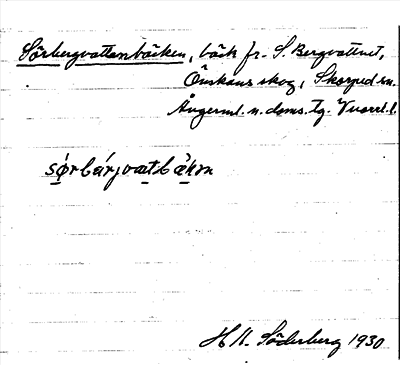 Sörbergvattenbäcken, bäck fr. S. Bergvattnet,
Önskans skog, Skorped sn.
Ångerml. n. doms. tg. Vnorrl. l.
sørbárjvatbäkɳ
H. Söderberg 1930